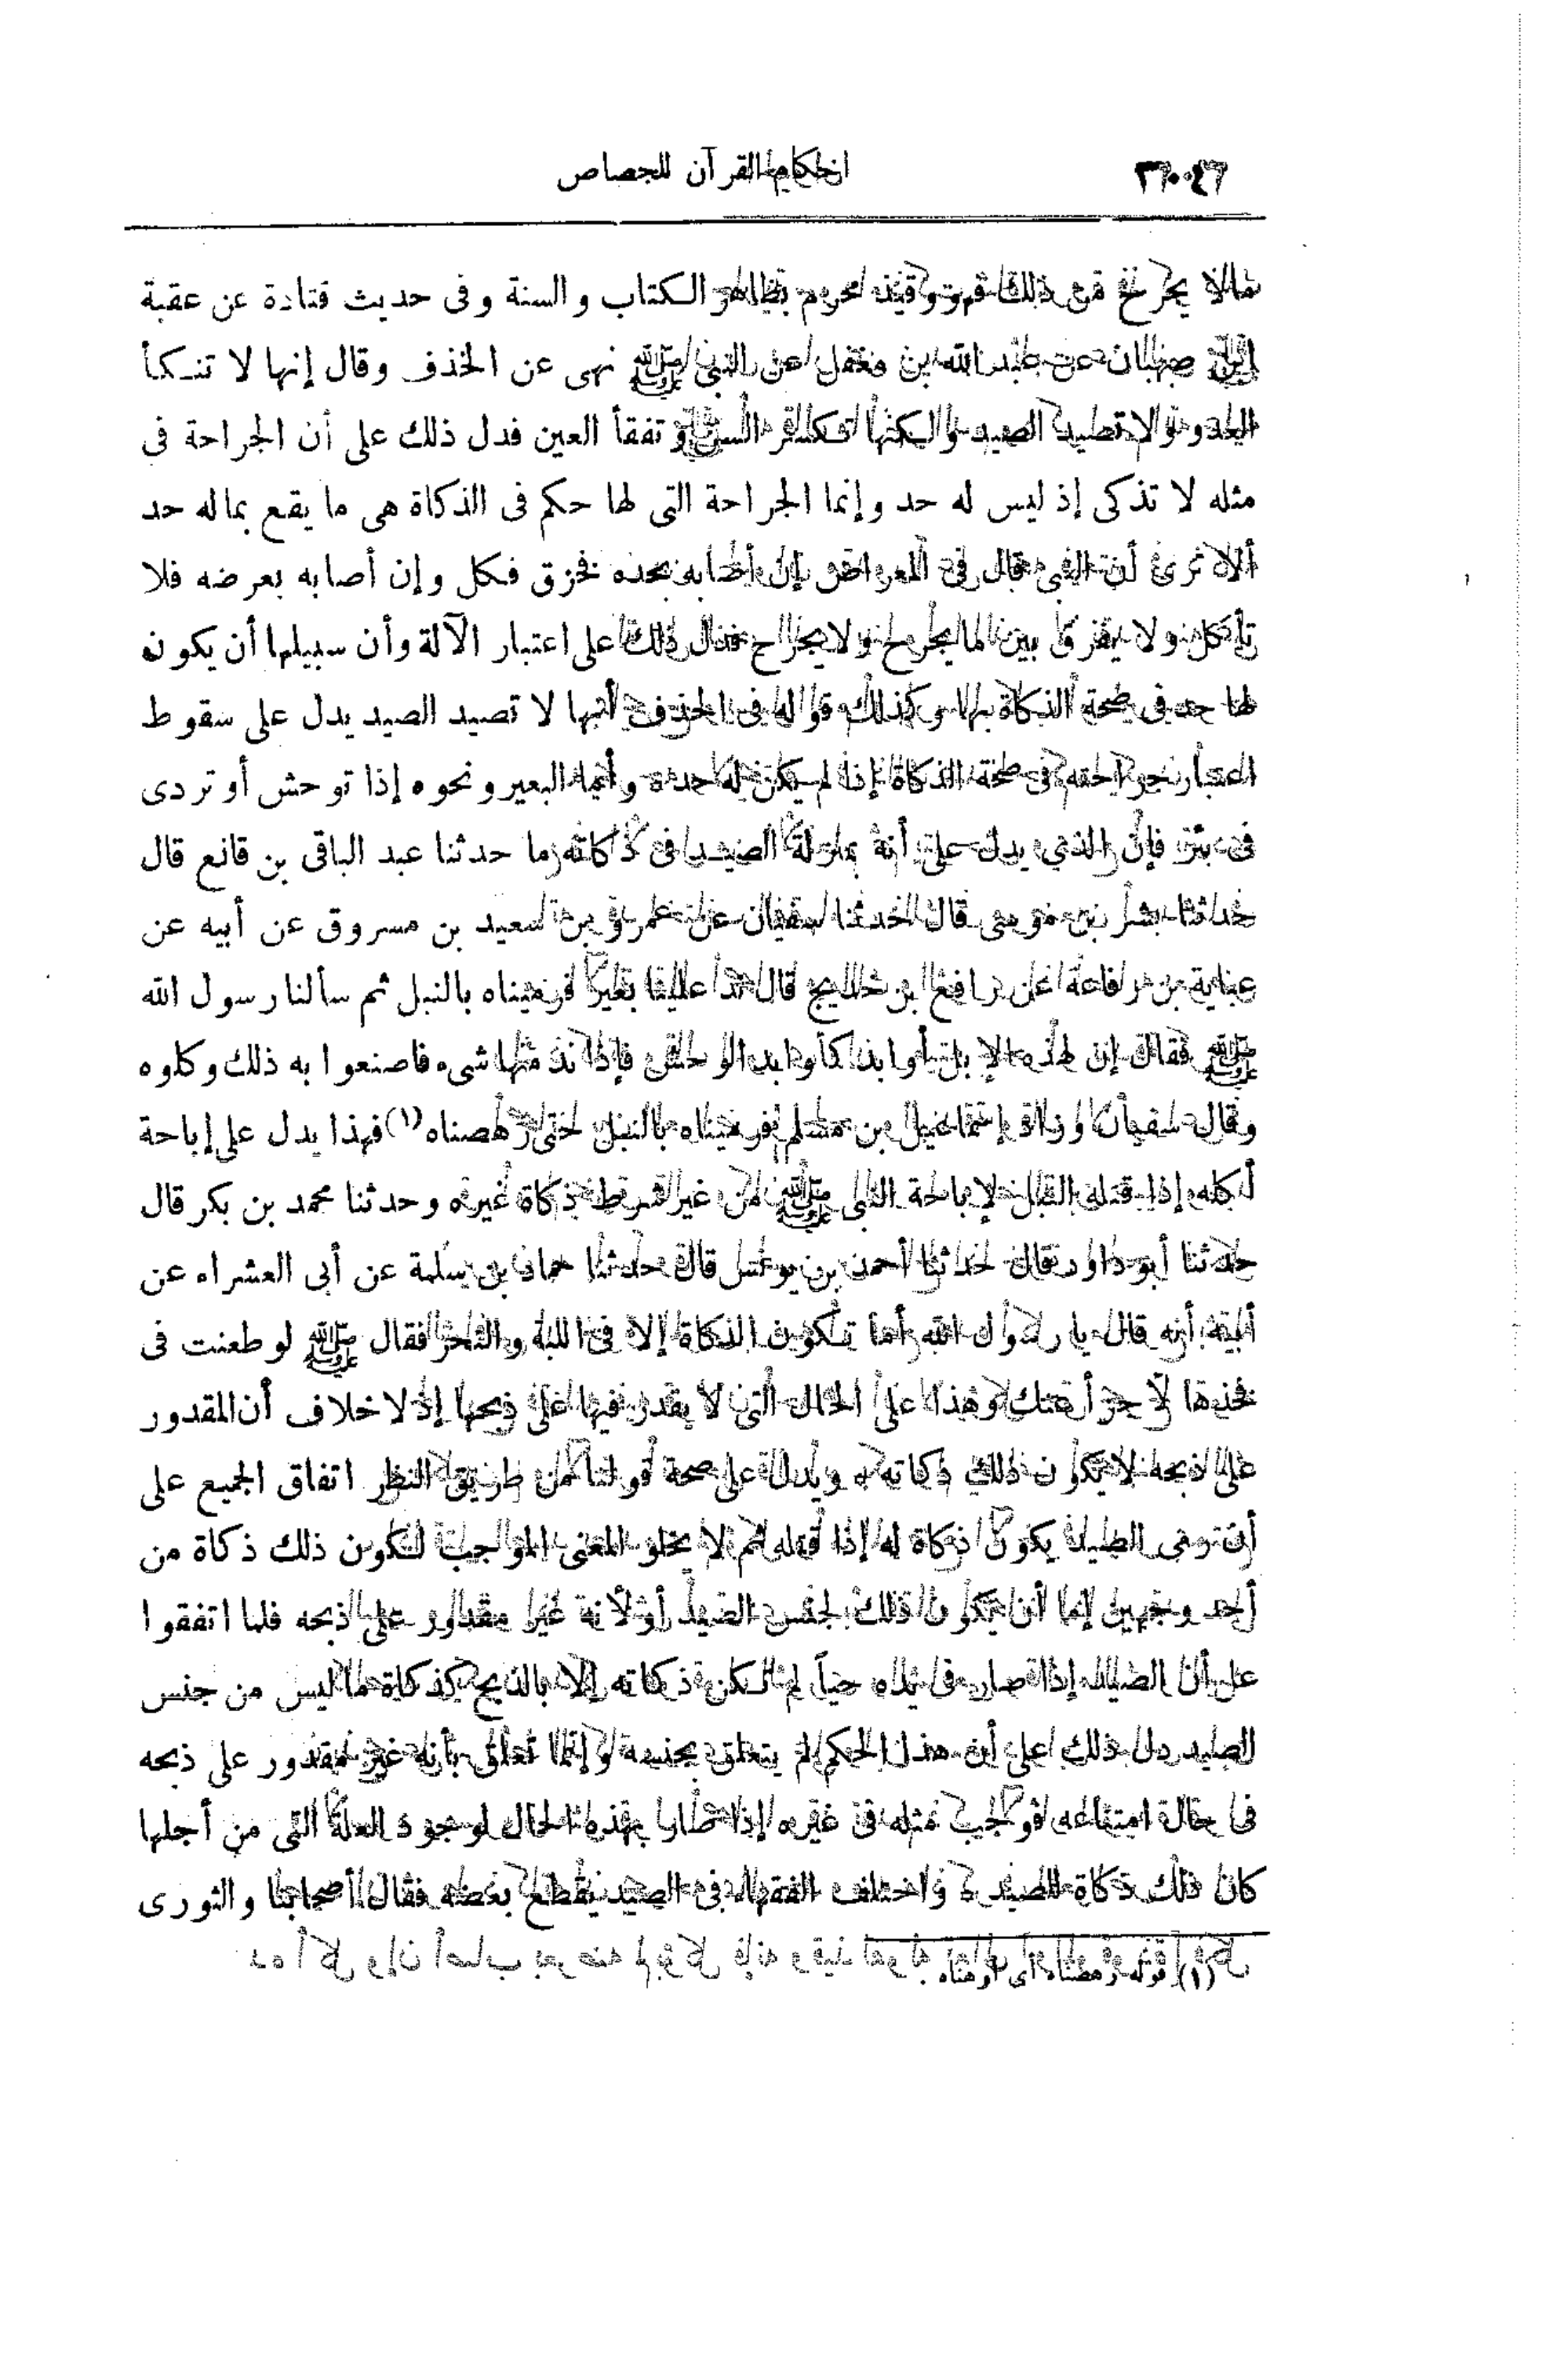 أحكام القرآن للجصاص
مالا يجرح من ذلك فهو وقيذ محرم بظاهر الكتاب والسنة وفى حديث قتادة عن عقبة
ابن صهبان عن عبد الله بن مغفل عن النبى ﷺ نهى عن الخذف وقال إنها لا تنكأ
العدو ولا تصيد الصيد ولكنها تكسر السن وتفقأ العين فدل ذلك على أن الجراحة فى
مثله لا تذكى إذ ليس له حد وإنما الجراحة التى لها حكم فى الذكاة هى ما يقع بماله حد
ألا ترى أن النبى قال فى المعراض إن أصابه بحده فخزق فكل وإن أصابه بعرضه فلا
تأكل ولا يفرق بين ما يجرح ولا يجرح فدل ذلك على اعتبار الآلة وأن سبيلها أن يكون
لها حد فى صحة الذكاة بها وكذلك قوله فى الخذف أنها لا تصيد الصيد يدل على سقوط
اعتبار جراحته فى صحة الذكاة إذا لم يكن له حد وأما البعير ونحوه إذا توحش أو تردى
فى بئر فإن الذى يدل على أنه بمنزلة الصيد فى ذكاته ما حدثنا عبد الباقى بن قانع قال
حدثنا بشر بن موسى قال حدثنا سفيان عن عمرو بن سعيد بن مسروق عن أبيه عن
عباية بن رفاعة عن رافع بن خديج قال ند علينا بعير فرميناه بالنبل ثم سألنا رسول الله
ﷺ فقال إن لهذه الإبل أوابد كأوابد الوحش فإذا ند منها شىء فاصنعوا به ذلك وكلوه
وقال سفيان وزاد إسماعيل بن مسلم فرميناه بالنبل حتى رهصناه (١) فهذا يدل على إباحة
أكله إذا قتله النبل لإباحة النبى ﷺ من غير شرط ذكاة غيره وحدثنا محمد بن بكر قال
حدثنا أبو داود قال حدثنا أحمد بن يونس قال حدثنا حماد بن سلمة عن أبى العشراء عن
أبيه أنه قال يا رسول الله أما تكون الذكاة إلا فى اللبة والنحر فقال ﷺ لو طعنت فى
فخذها لأجزأ عنك وهذا على الحال التى لا يقدر فيها على ذبحها إذ لا خلاف أن المقدور
على ذبحه لا يكون ذلك ذكاته ويدل على صحة قولنا من طريق النظر اتفاق الجميع على
أن رمى الصيد يكون ذكاة له إذا قتله ثم لا يخلو المعنى الموجب لكون ذلك ذكاة من
أحد وجهين إما أن يكون ذلك لجنس الصيد أو لأنه غير مقدور على ذبحه فلما اتفقوا
على أن الصيد إذا صار فى يده حياً لم تكن ذكاته إلا بالذبح كذكاة ما ليس من جنس
الصيد دل ذلك على أن هذا الحكم لم يتعلق بجنسه وإنما تعلق بأنه غير مقدور على ذبحه
فى حال امتناعه فوجب مثله فى غيره إذا صار بهذه الحال لوجود العلة التى من أجلها
كان ذلك ذكاة للصيد واختلف الفقهاء فى الصيد يقطع بعضه فقال أصحابنا والثورى
(١) قوله رهصناه أى أوهناه.